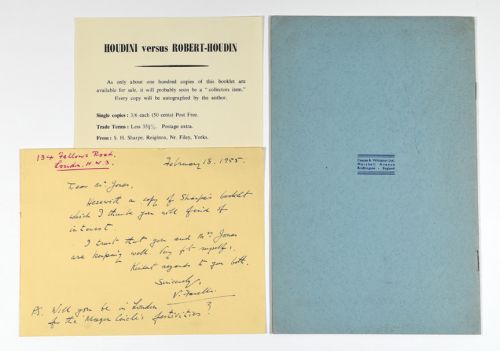 HOUDINI versus ROBERT-HOUDIN
As only about one hundred copies of this booklet are
available for sale, it will probably soon be a "collectors item."
Every copy will be autographed by the author.
Single copies : 3/6 each (50 cents) Post Free.
Trade Terms : Less 33⅓%. Postage extra.
From : S. H. Sharpe, Reighton, Nr. Filey, Yorks.
134 Fellows Road,
London. N.W.3.
February 18. 1955.
Dear Mr Jonas,
Herewith a copy of Sharpe's booklet
which I think you will find of
interest.
I trust that you and Mrs Jonas
are keeping well. I'm fit myself.
Kindest regards to you both.
Sincerely,
PS. Will you be in London
for the Magic Circle's festivities?
Bridlington - England